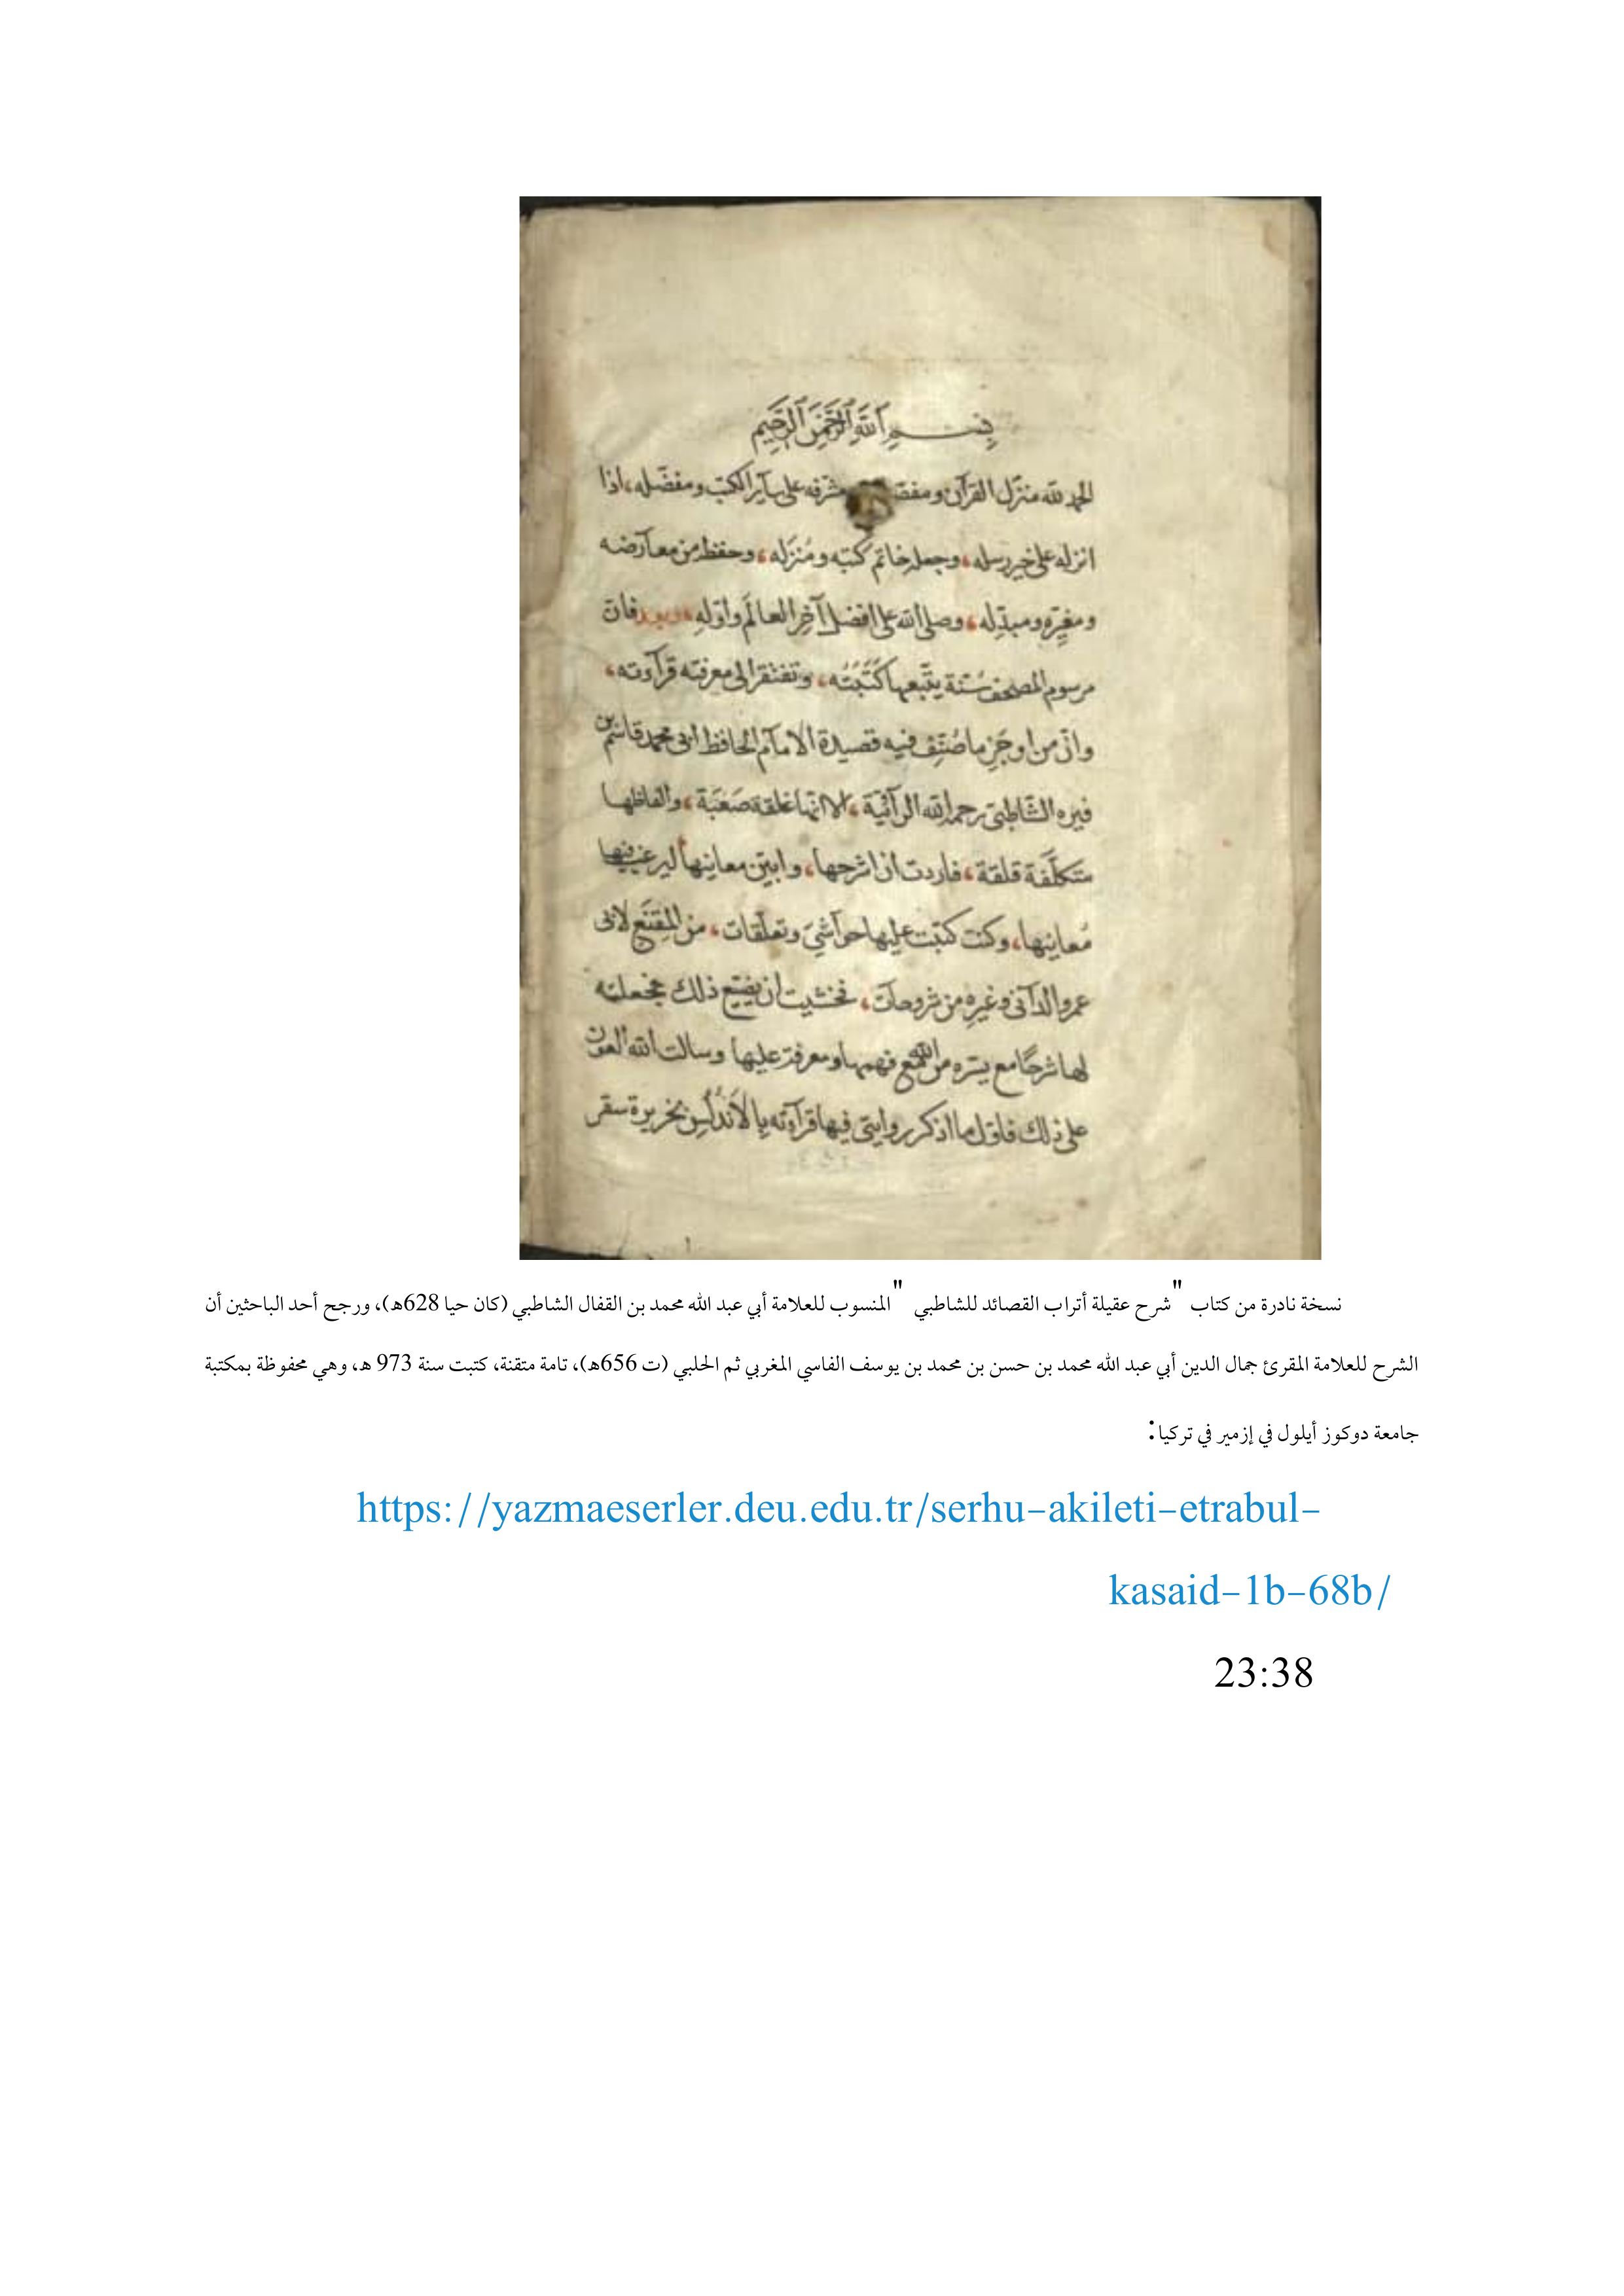 بسم الله الرحمن الرحيم
الحمد لله منزل القرآن ومفصّ مشرفه على سآير الكتب ومفضّله، اذا
انزله على خير رسله، وجعله خاتم كتبه ومُنزَله، وحفظه من معآرضه
ومغيِّره ومبدِّله، وصلى الله على افضل آخِر العالَم واوّلهِ، وبعد فان
مرسوم المصحف سُنة يتّبعها كَتَبَتُه، وتفتقر الى معرفته قرآءته،
وانّ من اوجَزِ ما صُنِّف فيه قصيدة الامآم الحافظ ابى محمد قاسم بن
فيره الشّاطبىّ رحمه الله الرآئيّة، الا انّها غلقة صَعْبَة، والفاظها
متكلَّفة قلقة، فاردت ان اشرحها، وابيّن معانيها ليرغب فيها
مُعانيها، وكنت كتبت عليها حوآشىَ وتعلّقات، من المُقنَع لابى
عمرو الدآنى وغيرِه من شروحات، فخشيت ان يضيّع ذلك فجعلته
لها شرحًا مع يسّره من الله فهمها ومعرفة عليها وسالت الله العون
على ذلك فاوّل ما اذكر روايتى فيها قرآءته بِالاَندلُسِ بخريرة سقر
نسخة نادرة من كتاب "شرح عقيلة أتراب القصائد للشاطبي "المنسوب للعلامة أبي عبد الله محمد بن القفال الشاطبي (كان حيا 628ه)، ورجح أحد الباحثين أن
الشرح للعلامة المقرئ جمال الدين أبي عبد الله محمد بن حسن بن محمد بن يوسف الفاسي المغربي ثم الحلبي (ت 656ه)، تامة متقنة، كتبت سنة 973 ه، وهي محفوظة بمكتبة
جامعة دوكوز أيلول في إزمير في تركيا:
https://yazmaeserler.deu.edu.tr/serhu-akileti-etrabul-
kasaid-1b-68b/
23:38